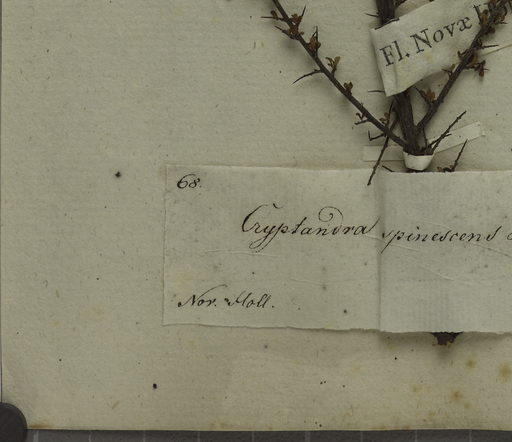 Fl. Novæ
68.
Cryptandra spinescens
Nov. Holl.